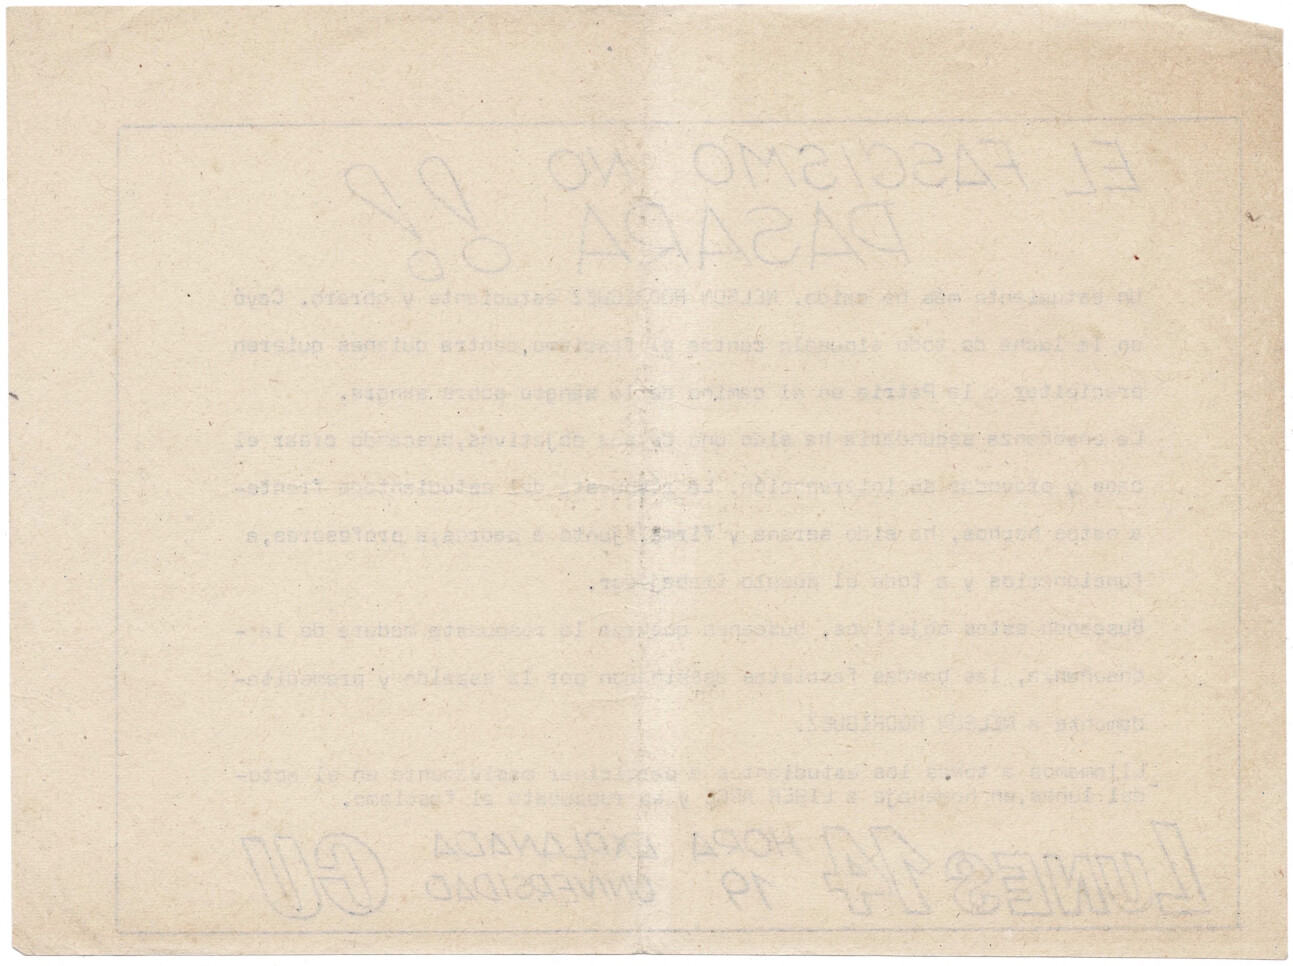 EL FASCISMO NO
PASARA !!
Un estudiante más ha caido, NELSON RODRIGUEZ estudiante y obrero. Cayó
en la lucha de todo contra el fascismo,contra quienes quieren
precipitar a la Patria en el camino de la sangre sobre sangre.
La enseñanza secundaria ha sido uno de sus objetivos,buscando crear el
caos y provocar la intervención. La respuesta del estudiantado frente-
a estos hechos, ha sido serena y firme,junto a padres,a profesores,a
funcionarios y a todo el pueblo trabajador.
Buscando estos objetivos, buscando quebrar la respuesta madura de la-
Enseñanza, las bandas fascistas asesinaron por la espalda y premedita-
damente a NELSON RODRIGUEZ.
Llamamos a todos los estudiantes a participar masivamente en el acto-
del lunes,en homenaje a LIBER ARCE y la respuesta al fascismo.
LUNES 14 HORA EXPLANADA
19 UNIVERSIDAD